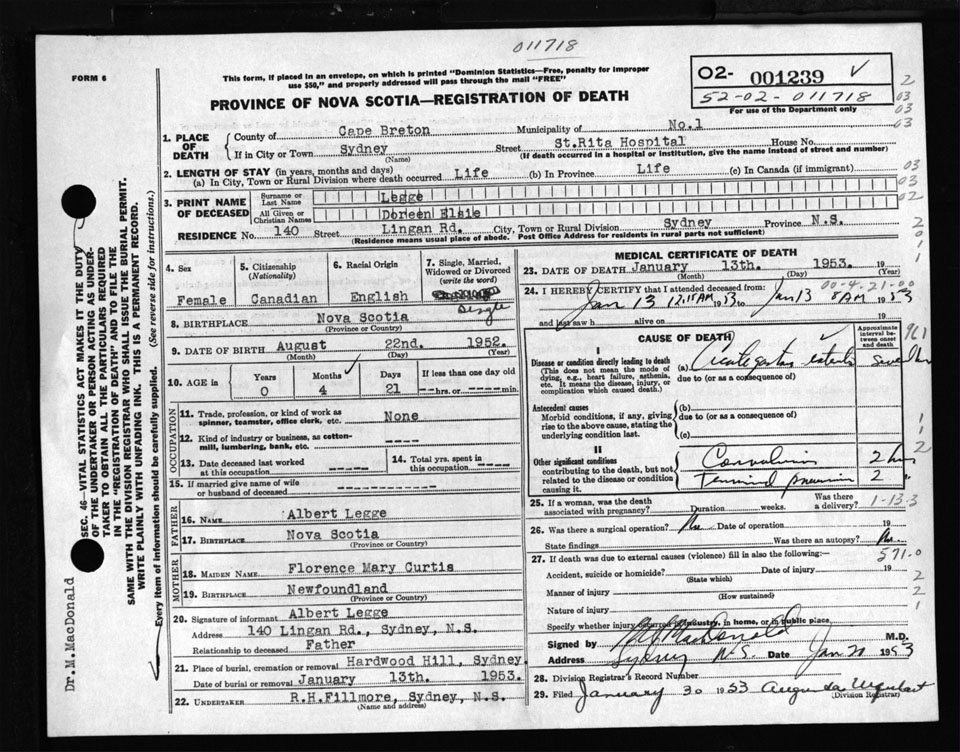 011718
FORM 6
This form, if placed in an envelope, on which is printed "Dominion Statistics—Free, penalty for improper
use $50," and properly addressed will pass through the mail "FREE"
PROVINCE OF NOVA SCOTIA—REGISTRATION OF DEATH
O2- 001239 ✓
52-02-011718
For use of the Department only
2
03
03
03
1. PLACE OF DEATH
County of Cape Breton Municipality of No.1
If in City or Town Sydney Street St.Rita Hospital House No.
(Name) (If death occurred in a hospital or institution, give the name instead of street and number)
2. LENGTH OF STAY (in years, months and days)
(a) In City, Town or Rural Division where death occurred Life (b) In Province Life (c) In Canada (if immigrant)
03
03
02
3. PRINT NAME OF DECEASED
Surname or Last Name Legge
All Given or Christian Names Doreen Elsie
RESIDENCE No. 140 Street Lingan Rd. City, Town or Rural Division Sydney Province N.S.
(Residence means usual place of abode. Post Office Address for residents in rural parts not sufficient)
2
0
1
1
4. Sex
Female
5. Citizenship
(Nationality)
Canadian
6. Racial Origin
English
7. Single, Married, Widowed or Divorced
(write the word)
Single
8. BIRTHPLACE Nova Scotia
(Province or Country)
9. DATE OF BIRTH August 22nd. 1952.
(Month) (Day) (Year)
10. AGE in
Years Months ✓ Days If less than one day old
0 4 21 hrs. or min.
OCCUPATION
11. Trade, profession, or kind of work as
spinner, teamster, office clerk, etc. None
12. Kind of industry or business, as cotton-
mill, lumbering, bank, etc. ----
13. Date deceased last worked
at this occupation -----
14. Total yrs. spent in
this occupation ----
15. If married give name of wife
or husband of deceased -----
FATHER
16. NAME Albert Legge
17. BIRTHPLACE Nova Scotia
(Province or Country)
MOTHER
18. MAIDEN NAME Florence Mary Curtis
19. BIRTHPLACE Newfoundland
(Province or Country)
20. Signature of informant Albert Legge
Address 140 Lingan Rd., Sydney, N.S.
Relationship to deceased Father
21. Place of burial, cremation or removal Hardwood Hill, Sydney
Date of burial or removal January 13th. 1953.
(Month) (Day) (Year)
22. UNDERTAKER R.H.Fillmore, Sydney, N.S.
(Name and address)
MEDICAL CERTIFICATE OF DEATH
23. DATE OF DEATH January 13th. 1953.
(Month) (Day) (Year)
24. I HEREBY CERTIFY that I attended deceased from: 00-4-21-00
Jan 13 12.15AM 1953 to Jan 13 8AM 1953
and last saw h alive on 19
CAUSE OF DEATH ✓
Approximate interval between onset and death
I
Disease or condition directly leading to death
(This does not mean the mode of
dying, e.g., heart failure, asthenia,
etc. It means the disease, injury, or
complication which caused death.)
(a) Acute gastro
due to (or as a consequence of)
Antecedent causes
Morbid conditions, if any, giving
rise to the above cause, stating the
underlying condition last.
(b)
due to (or as a consequence of)
(c)
II
Other significant conditions
contributing to the death, but not
related to the disease or condition
causing it.
2
Terminal 2
25. If a woman, was the death
associated with pregnancy? Duration weeks. Was there a delivery? 1-13-3
26. Was there a surgical operation? No Date of operation 19
State findings Was there an autopsy? No
27. If death was due to external causes (violence) fill in also the following:— 571-0
Accident, suicide or homicide? Date of injury 19
(State which)
Manner of injury
(How sustained)
Nature of injury
Specify whether injury occurred in industry, in home, or in public place.
Signed by MacDonald M.D.
Address Sydney N.S. Date Jan 20 1953
28. Division Registrar's Record Number
29. Filed January 30 1953 Augusta Urquhart
(Division Registrar)
SEC. 46—VITAL STATISTICS ACT MAKES IT THE DUTY
OF THE UNDERTAKER OR PERSON ACTING AS UNDER-
TAKER TO OBTAIN ALL THE PARTICULARS REQUIRED
IN THE "REGISTRATION OF DEATH" AND TO FILE THE
SAME WITH THE DIVISION REGISTRAR WHO SHALL ISSUE THE BURIAL PERMIT.
WRITE PLAINLY WITH UNFADING INK. THIS IS A PERMANENT RECORD.
Every item of information should be carefully supplied. (See reverse side for instructions.)
Dr.M.MacDonald